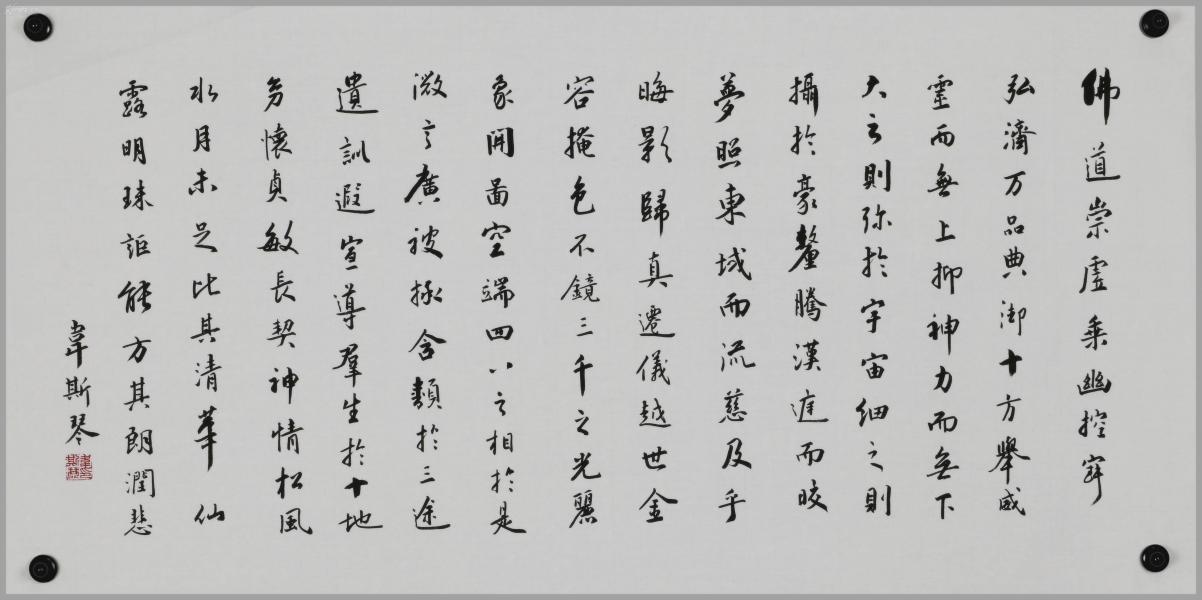 佛道崇虛乘幽控寂
弘濟万品典御十方舉威
靈而無上抑神力而無下
大之則弥於宇宙細之則
攝於豪釐騰漢庭而皎
夢照東域而流慈及乎
晦影歸真遷儀越世金
容掩色不鏡三千之光麗
象開圖空端四八之相於是
微言廣被拯含類於三途
遺訓遐宣導羣生於十地
懷貞敏長契神情松風
水月未足比其清華仙
露明珠詎能方其朗潤
韋斯琴